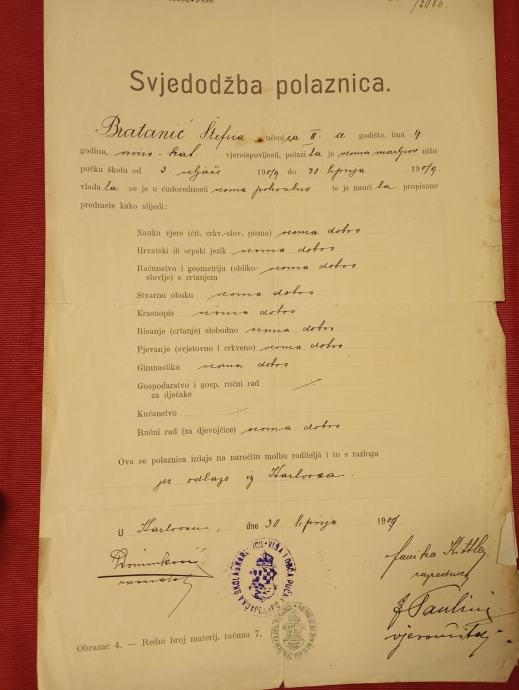 Svjedodžba polaznica.
Bratanić Štefica učenica II. a godišta, ima 9
godina, rimo-kat vjeroispovijesti, polazila je veoma marljivo nižu
pučku školu od 3 veljače 1909 do 30 lipnja 1909.
vladala se je u ćudorednosti veoma pohvalno te je naučila propisane
predmete kako slijedi:
Nauku vjere (čit. crkv.-slov. pisma) veoma dobro
Hrvatski ili srpski jezik veoma dobro
Računstvo i geometriju (obliko- veoma dobro
slovlje) s crtanjem
Stvarnu obuku veoma dobro
Krasnopis veoma dobro
Risanje (crtanje) slobodno veoma dobro
Pjevanje (svjetovno i crkveno) veoma dobro
Gimnastiku veoma dobro
Gospodarstvo i gosp. ručni rad
za dječake
Kućanstvo
Ručni rad (za djevojčice) veoma dobro
Ova se polaznica izdaje na naročitu molbu roditelja i to s razloga
jer odlazi iz Karlovca.
U Karlovcu, dne 30 lipnja 1909
ravnatelj
Obrazac 4. — Redni broj materij. računa 7.